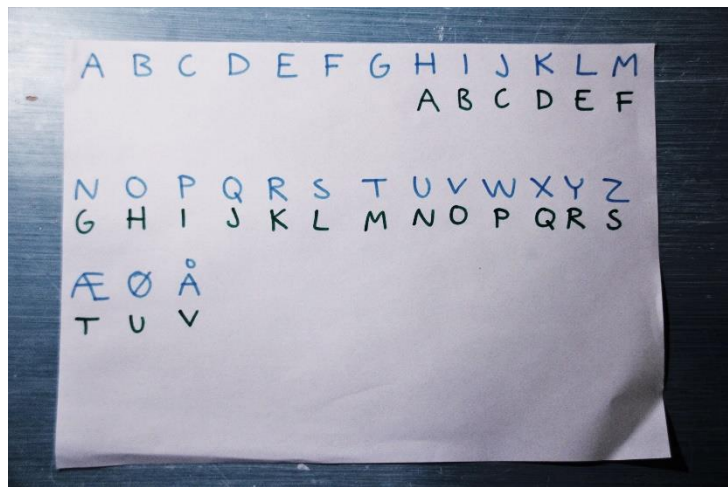 A B C D E F G H I J K L M
A B C D E F
N O P Q R S T U V W X Y Z
G H I J K L M N O P Q R S
Æ Ø Å
T U V